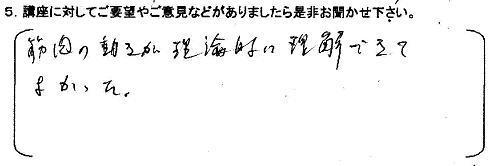 5. 講座に対してご要望やご意見などがありましたら是非お聞かせ下さい。
筋肉の動きが理論的に理解できて
よかった。